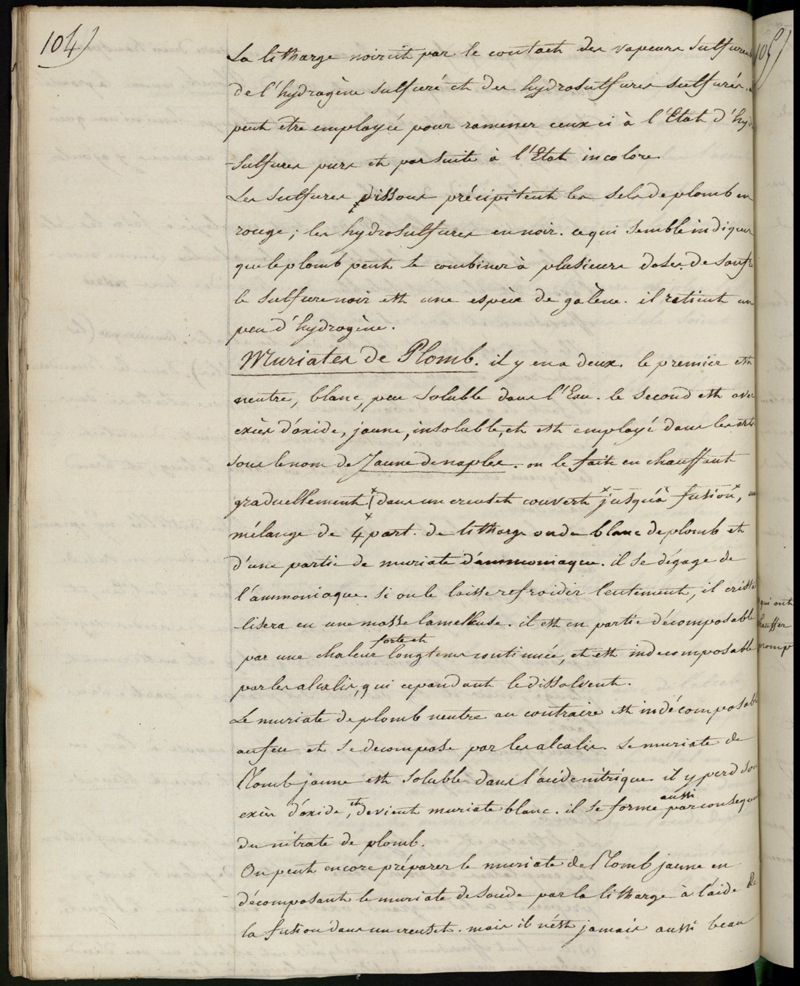 104)
La litharge noircit par le contact des vapeurs sulfures
de l'hydrogène sulfuré et des hydrosulfures sulfurés.
peut être employée pour ramener ceux ci à l'Etat d'hy-
-sulfures purs et par suite à l'Etat incolore.
Les sulfures dissous précipitent les sels de plomb en
rouge; les hydrosulfures en noir. ce qui semble indiquer
que le plomb peut se combiner à plusieurs doses de soufre
le sulfure noir est une espèce de galène. il retient un
peu d'hydrogène.
Muriates de Plomb. il y en a deux. le premier est
neutre, blanc, peu soluble dans l'Eau. le second est avec
excès d'oxide, jaune, insoluble, et est employé dans les arts
sous le nom de Jaune de naples. on le fait en chauffant
graduellement dans un creuset couvert jusqu'à fusion, un
mélange de 4 part. de litharge ou de blanc de plomb et
d'une partie de muriate d'ammoniaque. il se dégage de
l'ammoniaque. si on le laisse refroidir lentement, il cristal
lisera en une masse lamelleuse. il est en partie décomposable
par une chaleur forte et longtems continuée, et est indecomposable
par les alcalis, qui cependant le dissolvent.
Le muriate de plomb neutre au contraire est indécomposable
au feu et se decompose par les alcalis. Le muriate de
Plomb jaune est soluble dans l'acide nitrique. il y perd son
excès d'oxide, et devient muriate blanc. il se forme aussi par conseque
du nitrate de plomb.
On peut encore préparer le muriate de Plomb jaune en
décomposant le muriate de soude par la litharge à l'aide de
la fusion dans un creuset. mais il n'est jamais aussi beau
105)
qui ont
chauffer
promp